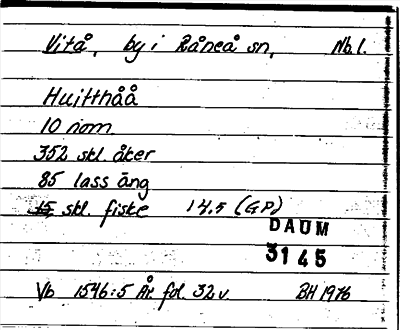 Vitå, by i Råneå sn, Nb.l.
Huitthåå
10 nom
352 skl. åker
85 lass äng
15, skl. fiske 14,5 (GP)
DAUM
3145
Vb 1546:5 År fol. 32v. BH 1976